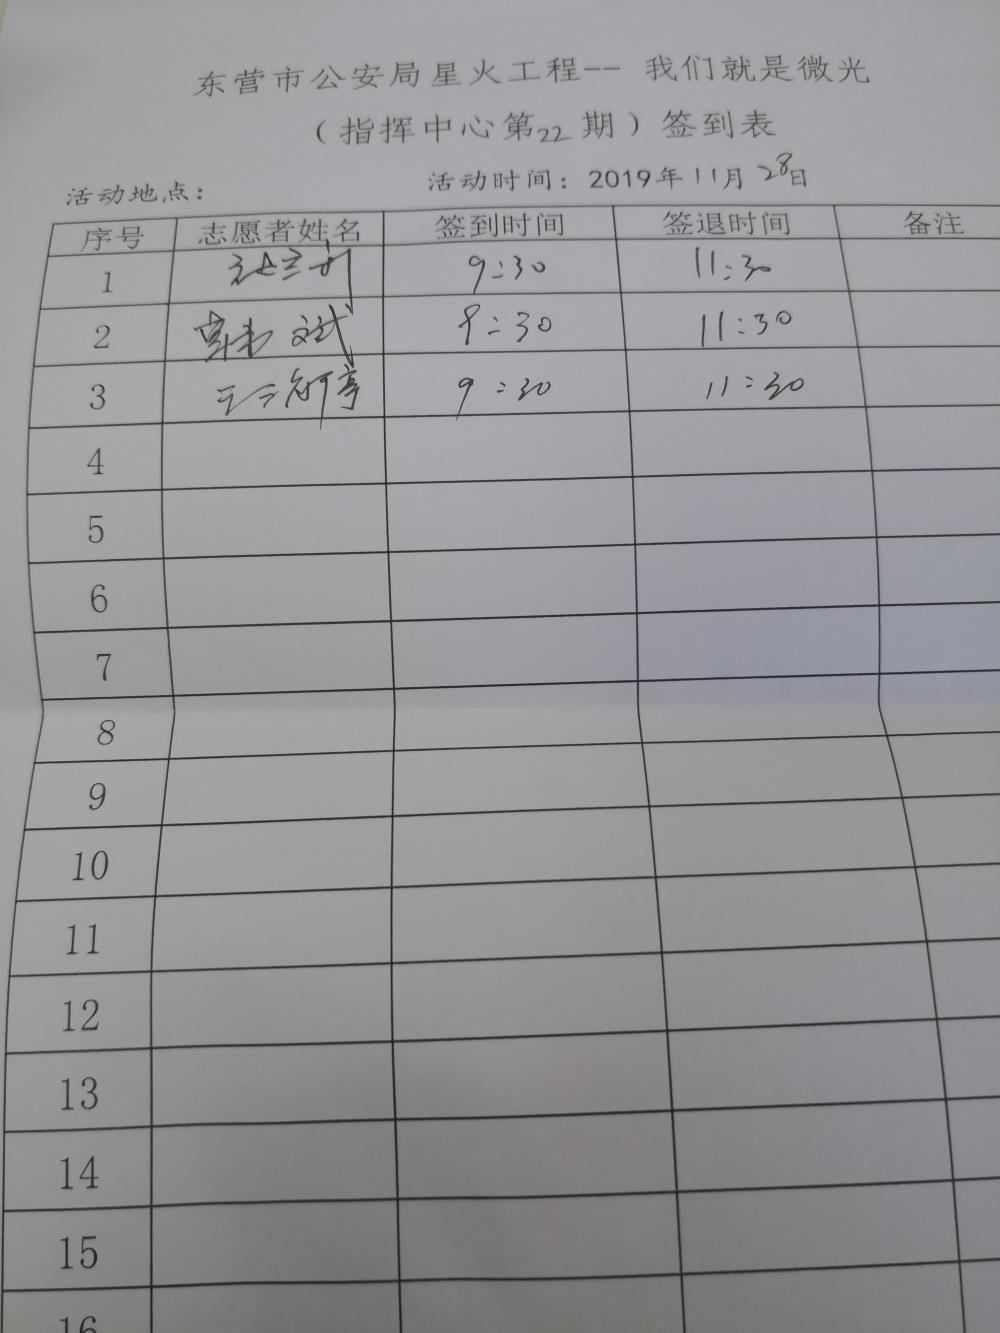 东营市公安局星火工程-- 我们就是微光
（指挥中心第22期）签到表
活动地点： 活动时间：2019年11月28日
序号 志愿者姓名 签到时间 签退时间 备注
1 9:30 11:30
2 9:30 11:30
3 9:30 11:30
4
5
6
7
8
9
10
11
12
13
14
15
16